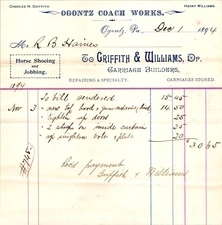 CHARLES H. GRIFFITH HARRY WILLIAMS
OGONTZ COACH WORKS.
Ogontz, Pa., Dec 1 1894
Mr R. B. Haines
Horse Shoeing and Jobbing.
TO GRIFFITH & WILLIAMS, Dr.
CARRIAGE BUILDERS,
REPAIRING A SPECIALTY. CARRIAGES STORED.
1894
To bill rendered 15 45
Nov 3 " new top
" tighten up
" 2 straps on inside curtain
" bolt & plate 20
30 65
Recd Payment
Griffith & Williams